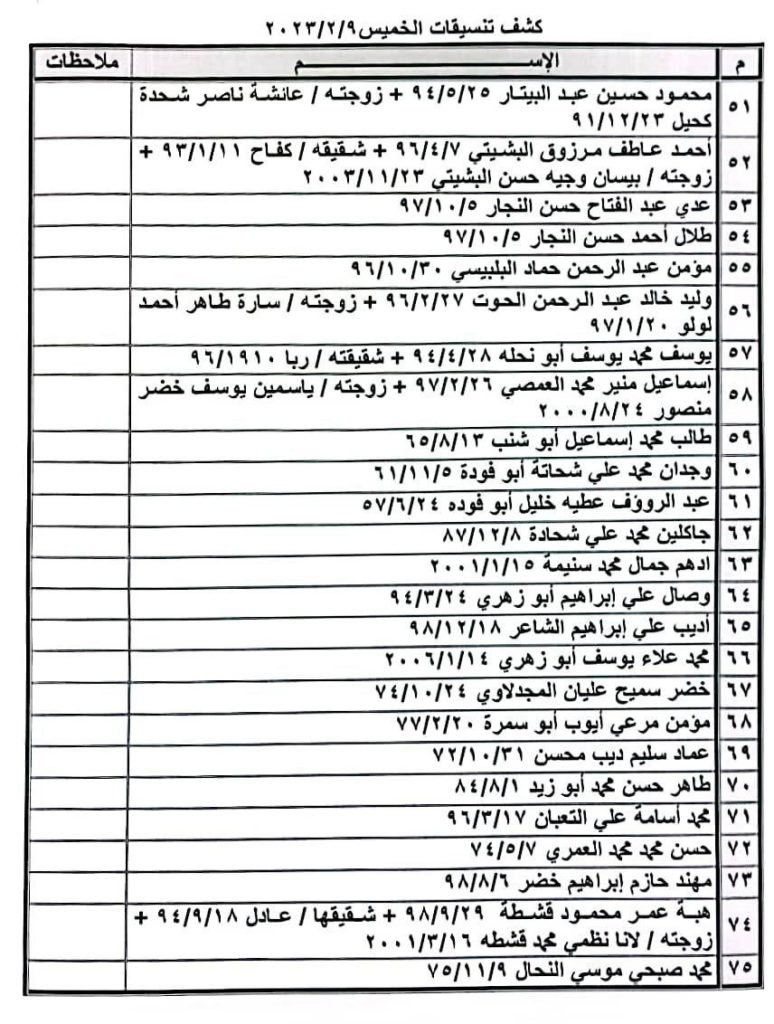 كشف تنسيقات الخميس ٢٠٢٣/٢/٩
م الإســـــــــم ملاحظات
٥١ محمود حسين عبد البيتار ٩٤/٥/٢٥ + زوجته / عائشة ناصر شحدة
كحيل ٩١/١٢/٢٣
٥٢ أحمد عاطف مرزوق البشيتي ٩٦/٤/٧ + شقيقه / كفاح ٩٣/١/١١ +
زوجته / بيسان وجيه حسن البشيتي ٢٠٠٣/١١/٢٣
٥٣ عدي عبد الفتاح حسن النجار ٩٧/١٠/٥
٥٤ طلال أحمد حسن النجار ٩٧/١٠/٥
٥٥ مؤمن عبد الرحمن حماد البلبيسي ٩٦/١٠/٣٠
٥٦ وليد خالد عبد الرحمن الحوت ٩٦/٢/٢٧ + زوجته / سارة طاهر أحمد
لولو ٩٧/١/٢٠
٥٧ يوسف محمد يوسف أبو نحله ٩٤/٤/٢٨ + شقيقته / ربا ٩٦/١٩١٠
٥٨ إسماعيل منير محمد العمصي ٩٧/٢/٢٦ + زوجته / ياسمين يوسف خضر
منصور ٢٠٠٠/٨/٢٤
٥٩ طالب محمد إسماعيل أبو شنب ٦٥/٨/١٣
٦٠ وجدان محمد علي شحاتة أبو فودة ٦١/١١/٥
٦١ عبد الروؤف عطيه خليل أبو فوده ٥٧/٦/٢٤
٦٢ جاكلين محمد علي شحادة ٨٧/١٢/٨
٦٣ ادهم جمال محمد سنيمة ٢٠٠١/١/١٥
٦٤ وصال علي إبراهيم أبو زهري ٩٤/٣/٢٤
٦٥ أديب علي إبراهيم الشاعر ٩٨/١٢/١٨
٦٦ محمد علاء يوسف أبو زهري ٢٠٠٦/١/١٤
٦٧ خضر سميح عليان المجدلاوي ٧٤/١٠/٢٤
٦٨ مؤمن مرعي أيوب أبو سمرة ٧٧/٢/٢٠
٦٩ عماد سليم ديب محسن ٧٢/١٠/٣١
٧٠ طاهر حسن محمد أبو زيد ٨٤/٨/١
٧١ محمد أسامة علي التعبان ٩٦/٣/١٧
٧٢ حسن محمد محمد العمري ٧٤/٥/٧
٧٣ مهند حازم إبراهيم خضر ٩٨/٨/٦
٧٤ هبة عمر محمود قشطة ٩٨/٩/٢٩ + شقيقها / عادل ٩٤/٩/١٨ +
زوجته / لانا نظمي محمد قشطه ٢٠٠١/٣/١٦
٧٥ محمد صبحي موسي النحال ٧٥/١١/٩